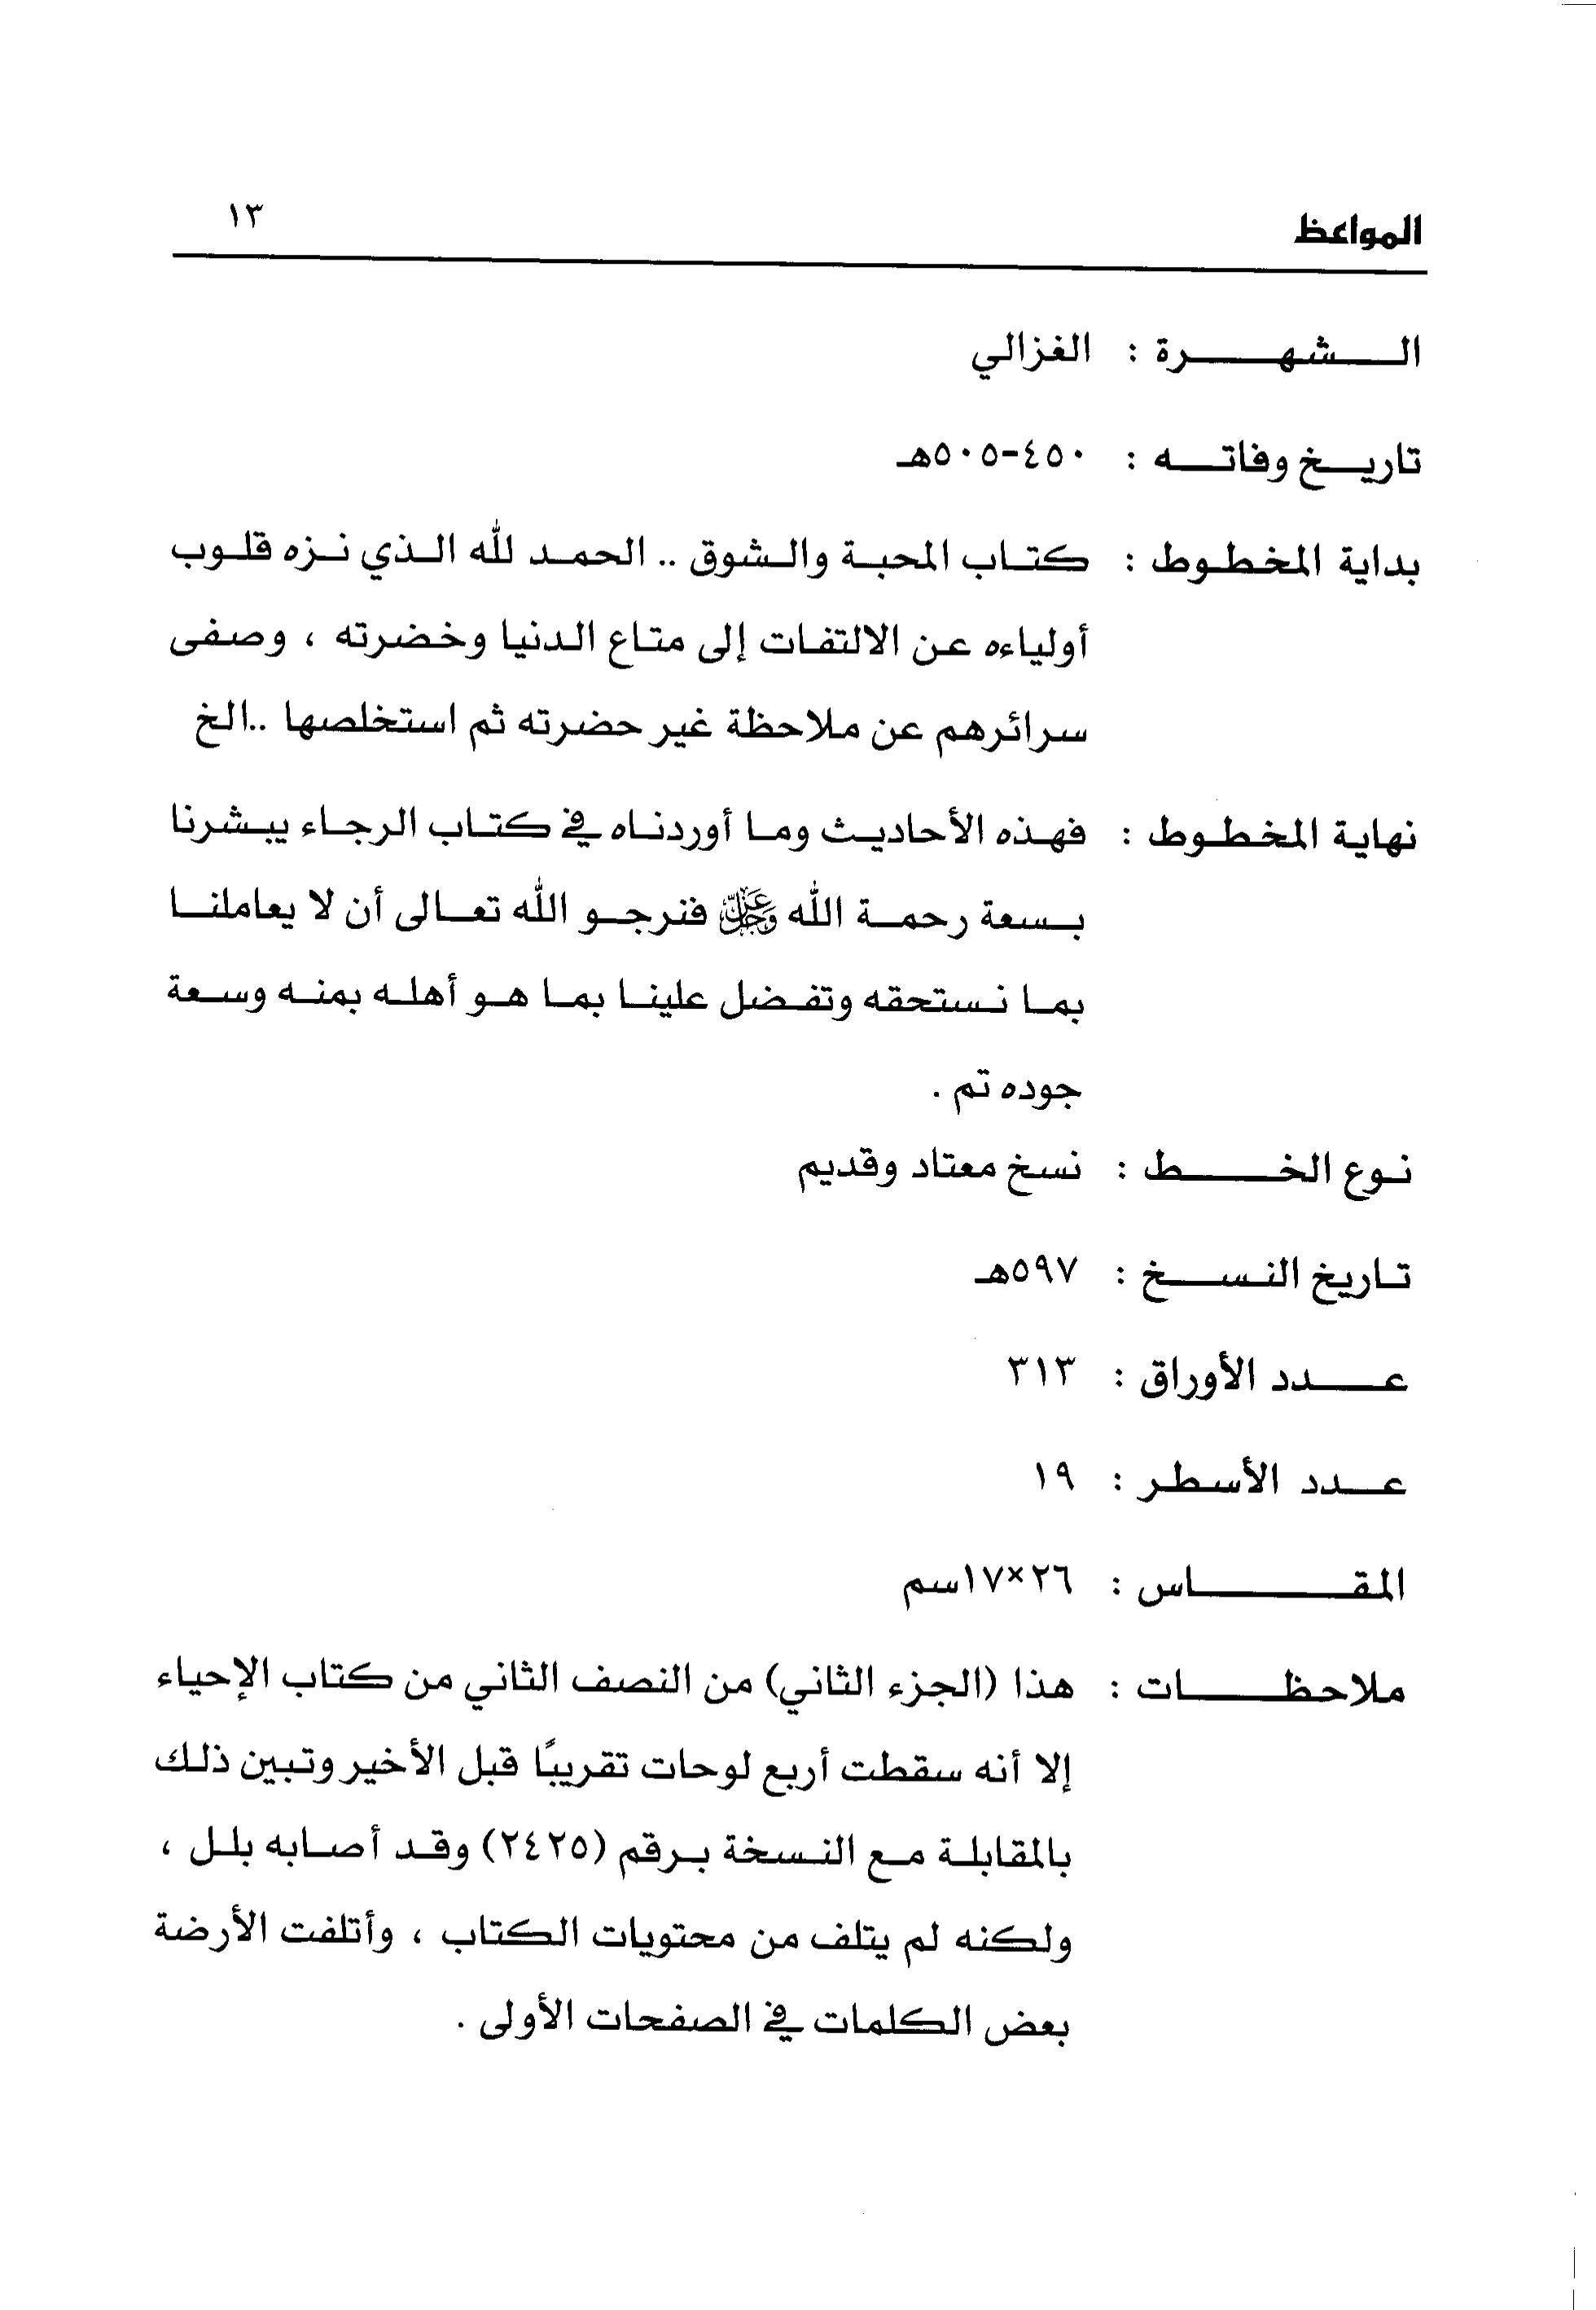 المواعظ ١٣
الشهرة : الغزالي
تاريخ وفاته : ٤٥٠-٥٠٥هـ
بداية المخطوط : كتاب المحبة والشوق .. الحمد لله الذي نزه قلوب
أولياءه عن الالتفات إلى متاع الدنيا وخضرته ، وصفى
سرائرهم عن ملاحظة غير حضرته ثم استخلصها ..الخ
نهاية المخطوط : فهذه الأحاديث وما أوردناه في كتاب الرجاء يبشرنا
بسعة رحمة الله عز وجل فنرجو الله تعالى أن لا يعاملنا
بما نستحقه وتفضل علينا بما هو أهله بمنه وسعة
جوده تم .
نوع الخط : نسخ معتاد وقديم
تاريخ النسخ : ٥٩٧هـ
عدد الأوراق : ٣١٣
عدد الأسطر : ١٩
المقاس : ٢٦×١٧سم
ملاحظات : هذا (الجزء الثاني) من النصف الثاني من كتاب الإحياء
إلا أنه سقطت أربع لوحات تقريبًا قبل الأخير وتبين ذلك
بالمقابلة مع النسخة برقم (٢٤٢٥) وقد أصابه بلل ،
ولكنه لم يتلف من محتويات الكتاب ، وأتلفت الأرضة
بعض الكلمات في الصفحات الأولى .